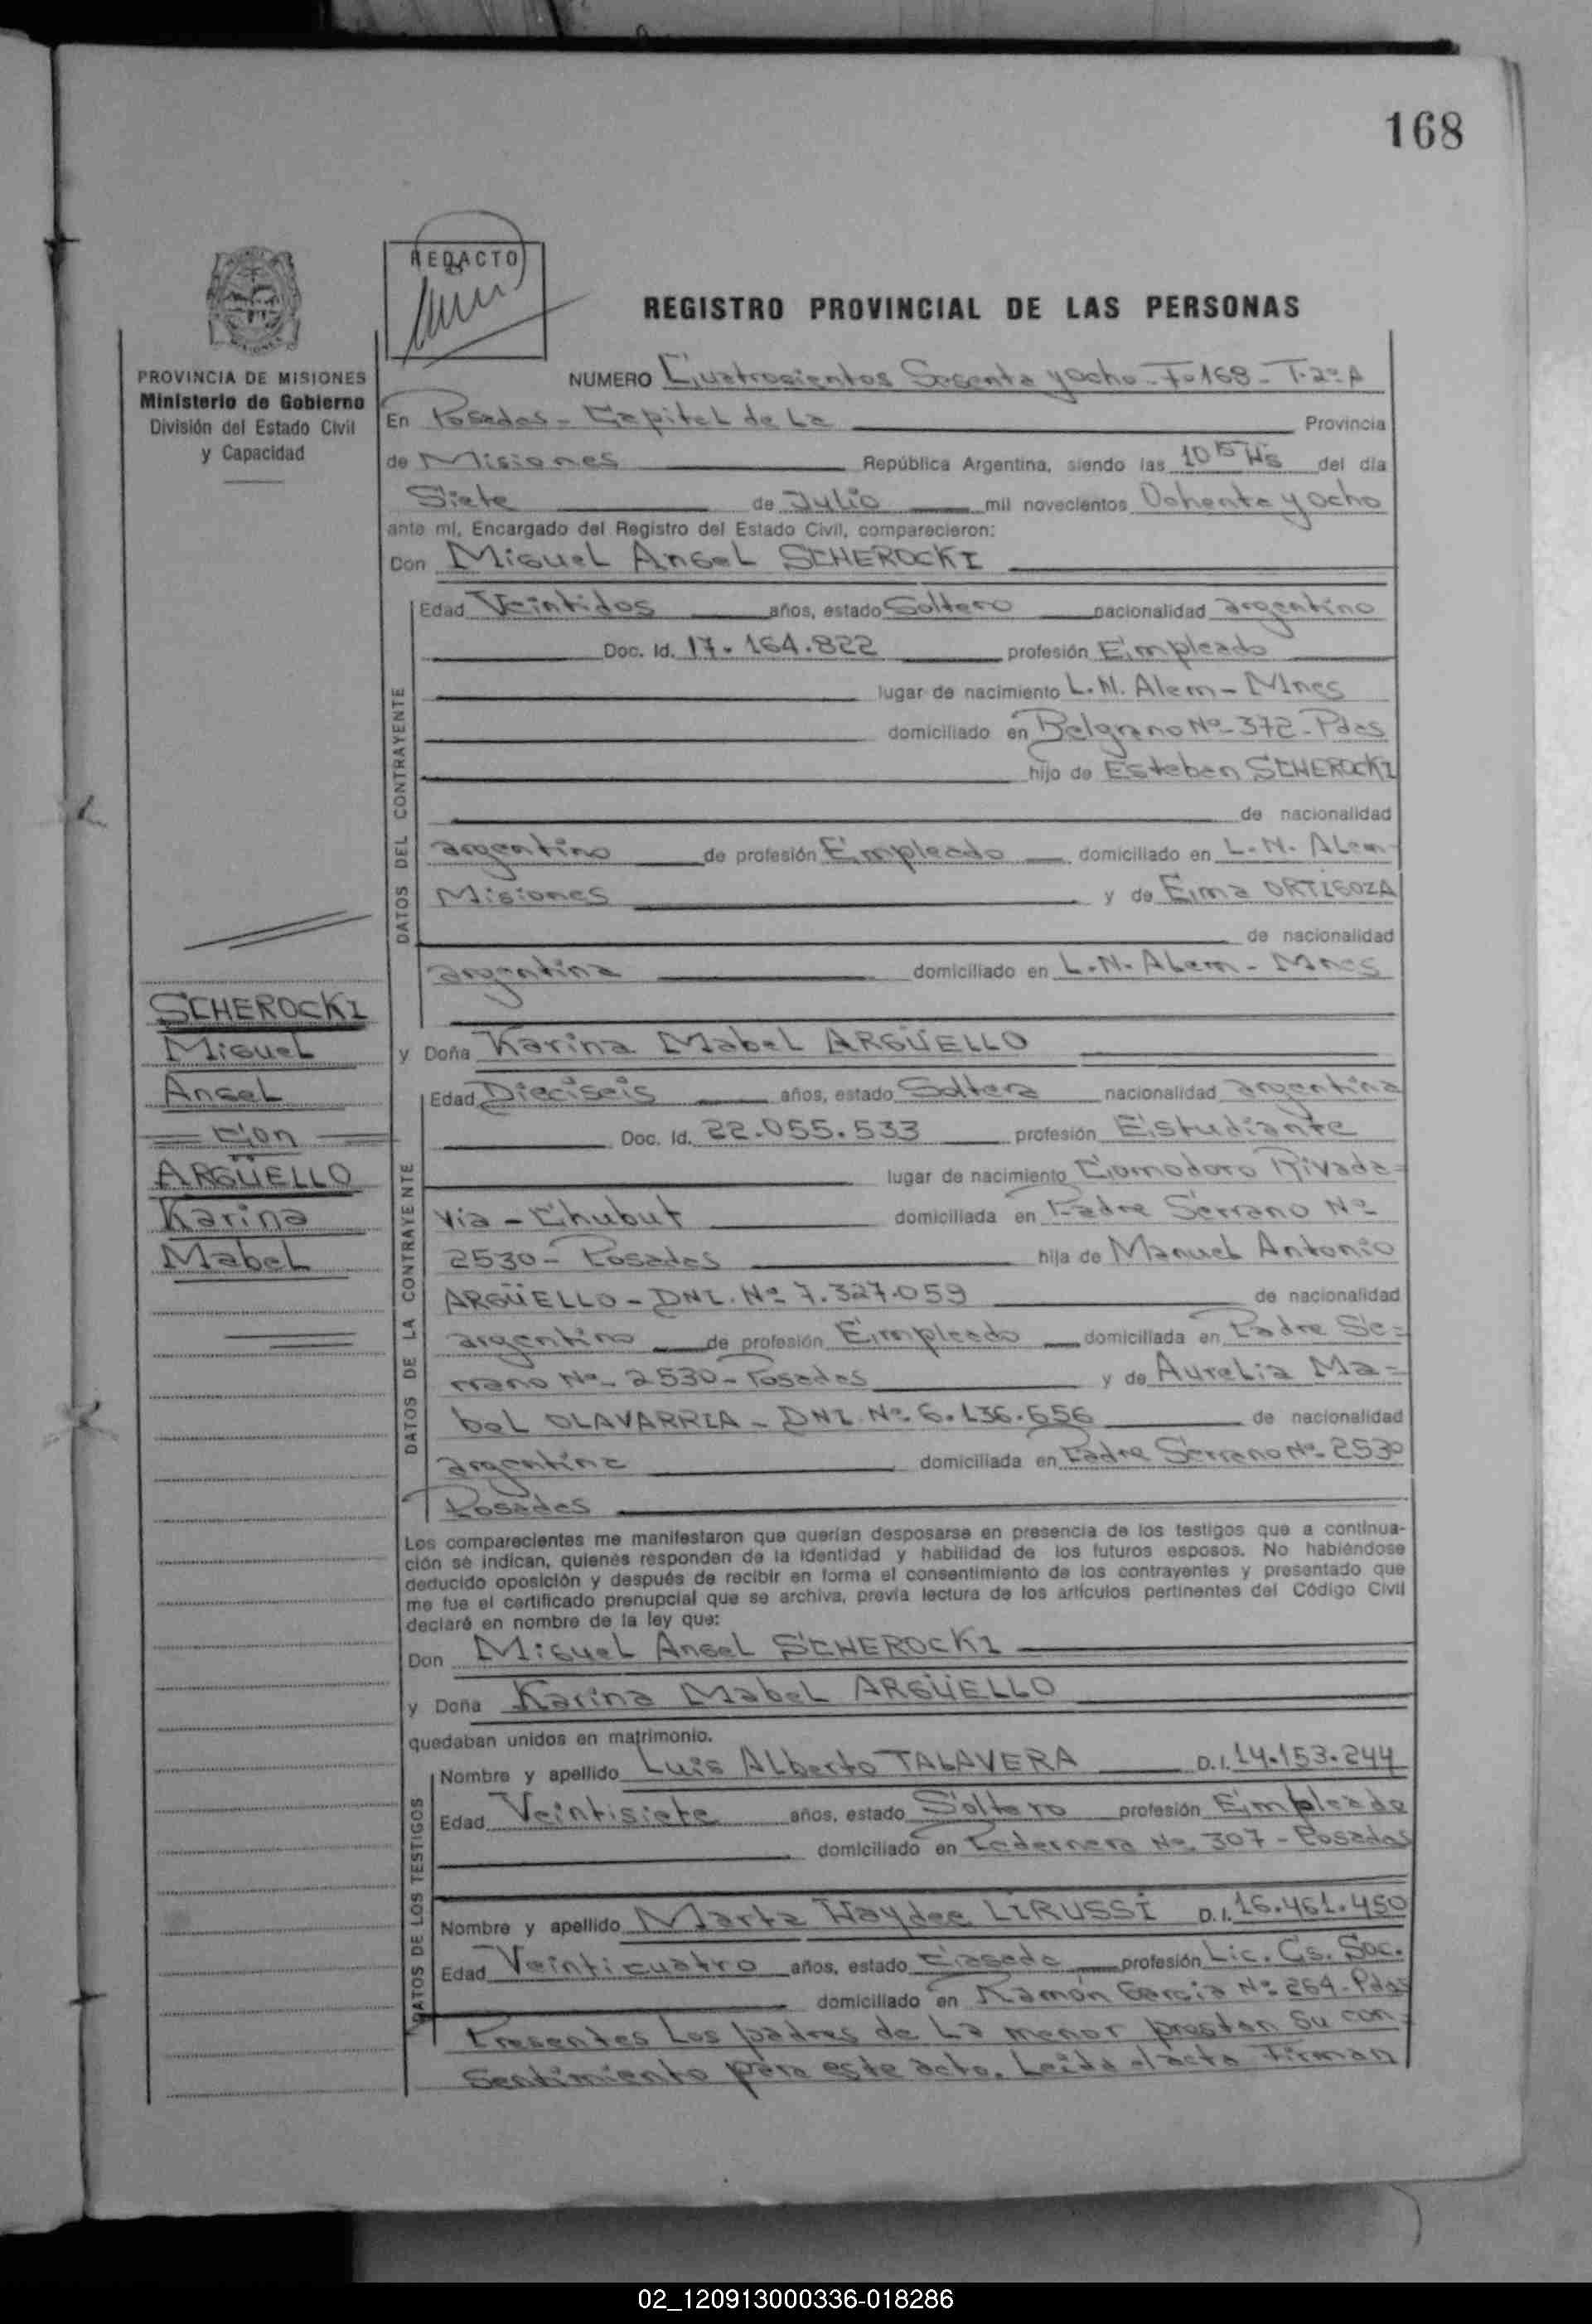 168
REDACTO
REGISTRO PROVINCIAL DE LAS PERSONAS
PROVINCIA DE MISIONES
Ministerio de Gobierno
División del Estado Civil
y Capacidad
NUMERO Cuatrocientos Sesenta y ocho - Fº 168 - T. 2º A
En Posadas - Capital de La Provincia
de Misiones República Argentina, siendo las 10 15 Hs del día
Siete de Julio mil novecientos Ochenta y ocho
ante mí, Encargado del Registro del Estado Civil, comparecieron:
Don Miguel Angel SCHEROCKI
DATOS DEL CONTRAYENTE
Edad Veintidos años, estado Soltero nacionalidad argentino
Doc. Id. 17.164.822 profesión Empleado
lugar de nacimiento L.N. Alem - Mnes
domiciliado en Belgrano Nº 372 - Pdas
hijo de Esteban SCHEROCKI
de nacionalidad
argentino de profesión Empleado domiciliado en L.N. Alem
Misiones y de Ema ORTIGOZA
de nacionalidad
argentina domiciliado en L.N. Alem - Mnes
SCHEROCKI
Miguel
Angel
con
ARGÜELLO
Karina
Mabel
y Doña Karina Mabel ARGÜELLO
DATOS DE LA CONTRAYENTE
Edad Dieciseis años, estado Soltera nacionalidad argentina
Doc. Id. 22.055.533 profesión Estudiante
lugar de nacimiento Comodoro Rivada=
via - Chubut domiciliada en Padre Serrano Nº
2530 - Posadas hija de Manuel Antonio
ARGÜELLO - DNI. Nº 7.327.059 de nacionalidad
argentino de profesión Empleado domiciliada en Padre Se=
rrano Nº 2530 - Posadas y de Aurelia Ma=
bel OLAVARRIA - DNI. Nº 6.136.656 de nacionalidad
argentina domiciliada en Padre Serrano Nº 2530
Posadas
Los comparecientes me manifestaron que querían desposarse en presencia de los testigos que a continua-
ción se indican, quienes responden de la identidad y habilidad de los futuros esposos. No habiéndose
deducido oposición y después de recibir en forma el consentimiento de los contrayentes y presentado que
me fue el certificado prenupcial que se archiva, previa lectura de los artículos pertinentes del Código Civil
declaré en nombre de la ley que:
Don Miguel Angel SCHEROCKI
y Doña Karina Mabel ARGÜELLO
quedaban unidos en matrimonio.
DATOS DE LOS TESTIGOS
Nombre y apellido Luis Alberto TALAVERA D.I. 14.153.244
Edad Veintisiete años, estado Soltero profesión Empleado
domiciliado en Pedernera Nº 307 - Posadas
Nombre y apellido Marta Haydee LIRUSSI D.I. 16.461.450
Edad Veinticuatro años, estado Casada profesión Lic. Cs. Soc.
domiciliado en Ramón Garcia Nº 264 - Pdas
Presentes Los padres de La menor prestan su con=
sentimiento para este acto. Leida el acta Firman
02_120913000336-018286